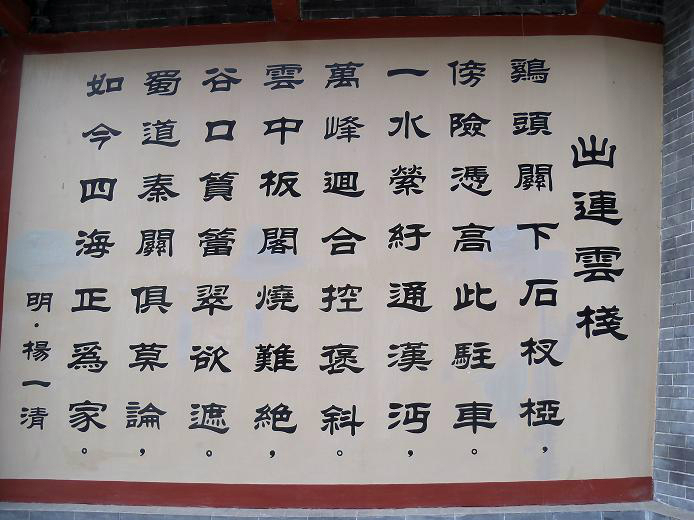 出連雲棧
鷄頭關下石杈椏，
傍險憑高此駐車。
一水縈紆通漢沔，
萬峰迴合控褒斜。
雲中板閣燒難絶，
谷口篔簹翠欲遮。
蜀道秦關俱莫論，
如今四海正爲家。
明·楊一清